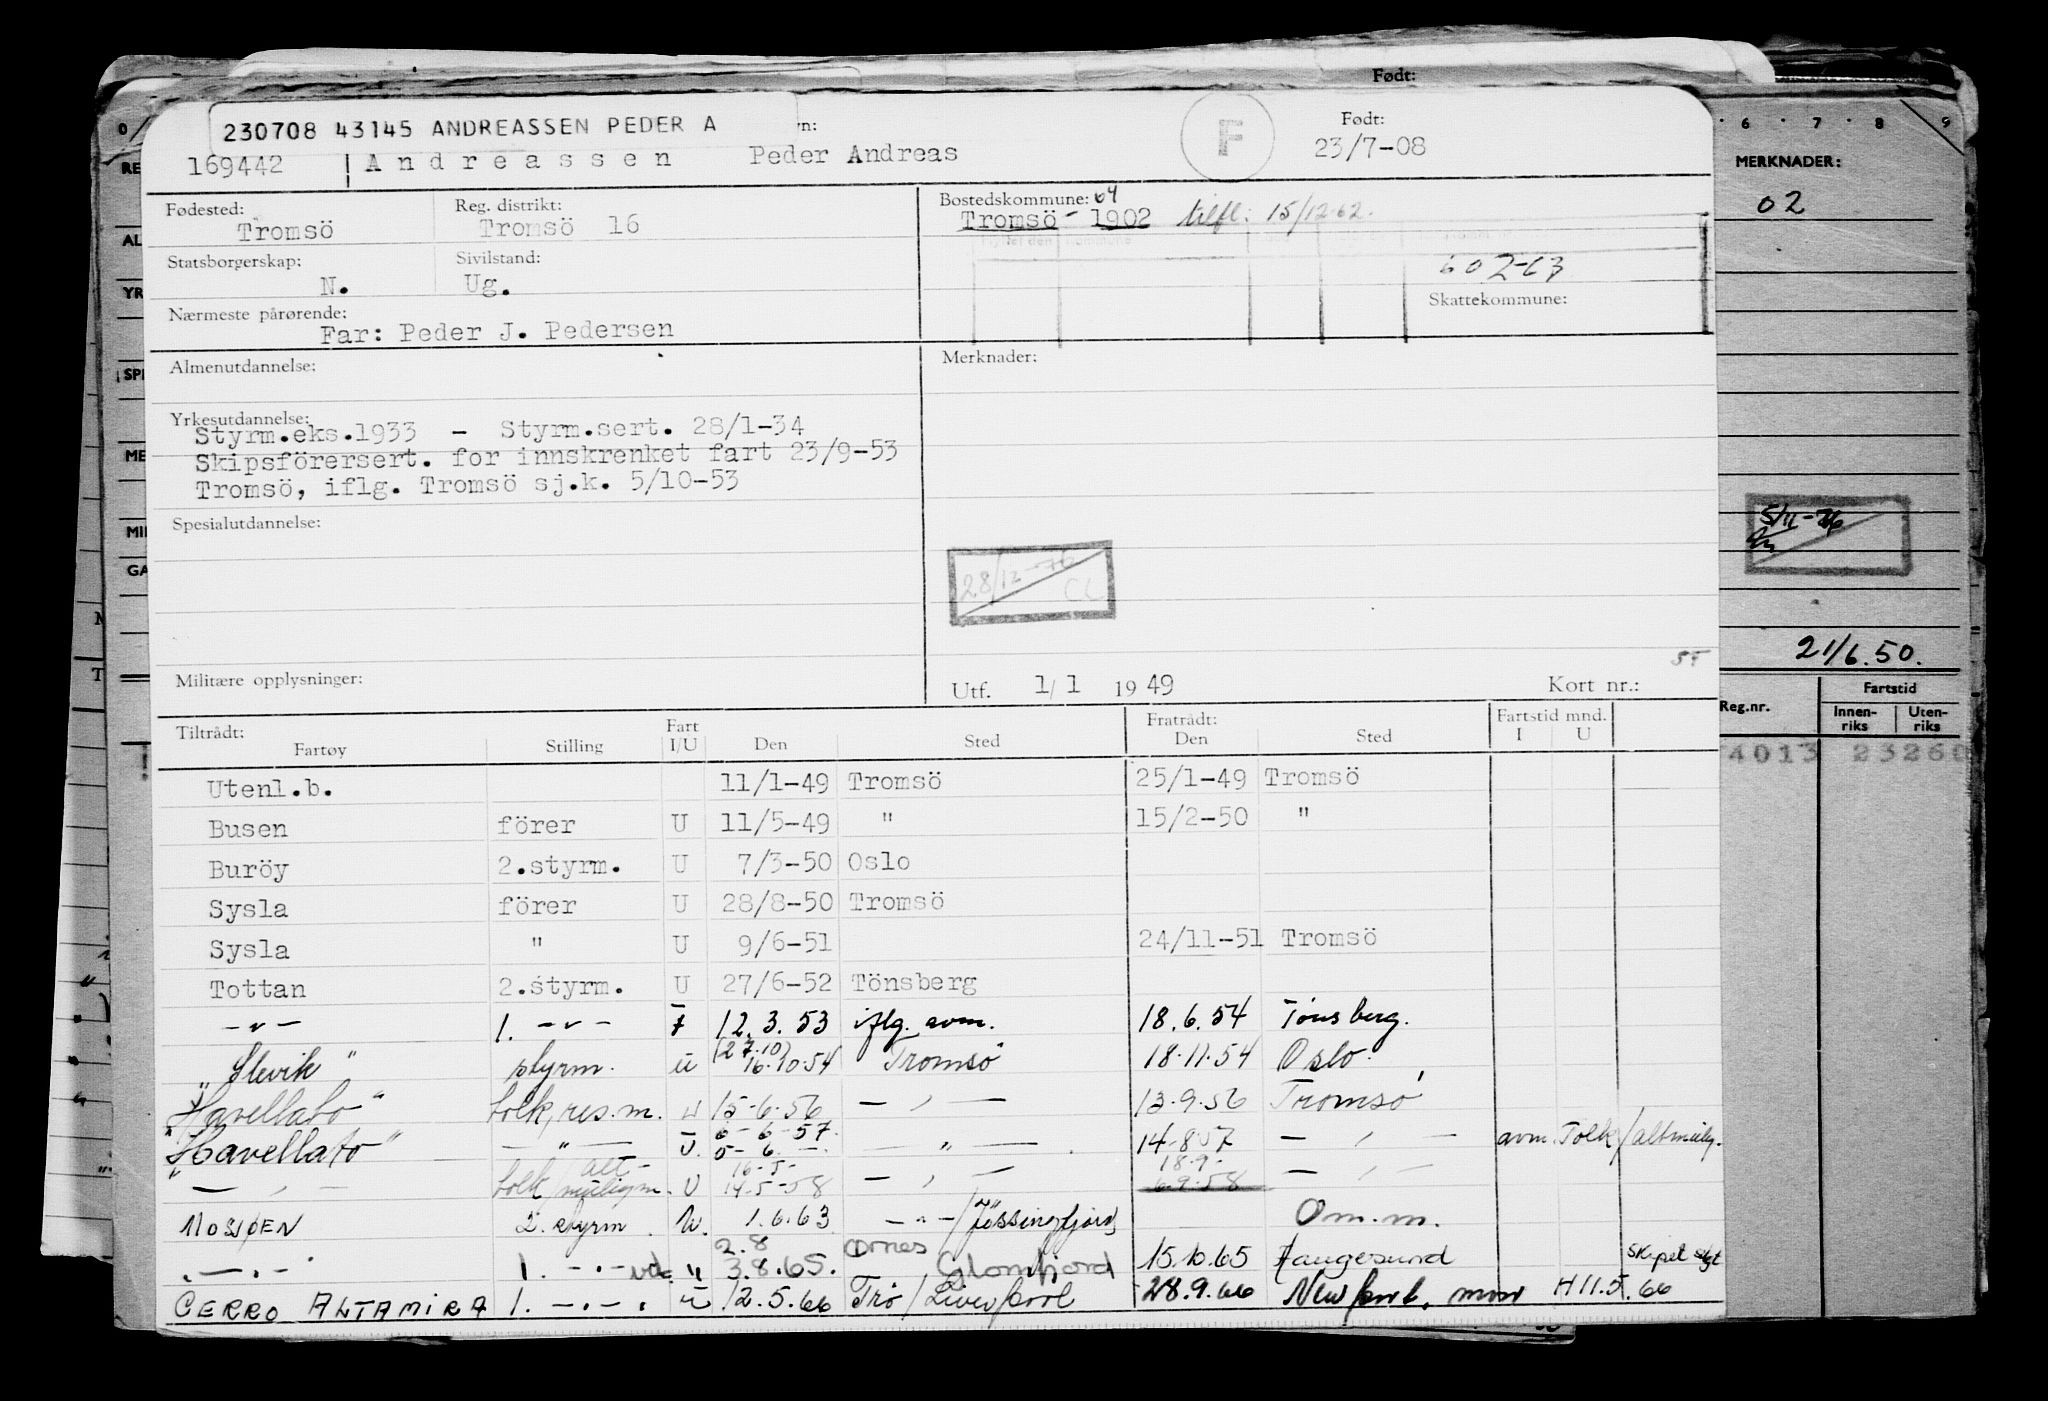 Født:
230708 43145 ANDREASSEN PEDER A
vn:
F
Født:
169442 Andreassen Peder Andreas 23/7-08
6 . 7 . 8 . 9
MERKNADER:
02
Fødested: Reg. distrikt: Bostedskommune: 04
Tromsö Tromsö 16 Tromsö - 1902 tilfl: 15/12-62.
Statsborgerskap: Sivilstand:
N. Ug. 602-63
Nærmeste pårørende: Skattekommune:
Far: Peder J. Pedersen
Almenutdannelse: Merknader:
Yrkesutdannelse:
Styrm.eks.1933 - Styrm.sert. 28/1-34
Skipsförersert. for innskrenket fart 23/9-53
Tromsö, iflg. Tromsö sj.k. 5/10-53
Spesialutdannelse:
5/11-76
28/12-76 CL
21/6.50.
ST
Militære opplysninger: Utf. 1/1 1949 Kort nr.:
Reg.nr. Fartstid
Innenriks Utenriks
4013 2326
Tiltrådt: Fart Fratrådt: Fartstid mnd.
Fartøy Stilling I/U Den Sted Den Sted I U
Utenl.b. 11/1-49 Tromsö 25/1-49 Tromsö
Busen förer U 11/5-49 " 15/2-50 "
Buröy 2.styrm. U 7/3-50 Oslo
Sysla förer U 28/8-50 Tromsö
Sysla " U 9/6-51 24/11-51 Tromsö
Tottan 2.styrm. U 27/6-52 Tönsberg
-"- 1. -"- 12.3.53 iflg. avm. 18.6.54 Tönsberg.
(27.10)
"Slevik" styrm. u 16.10.54 Tromsö 18.11.54 Oslo.
"Havellabo" tolk, res.m. u 15-6-56 — " — 13.9.56 Tromsö
6-6-57.
"Havellato" — " — U. 5-6- — " — 14-8-57 — " — avm. Tolk/altmulig.
alt- 16-5- 18.9-
" — " — tolk/muligm. U 14-5-58 — " — 6.9.58 — " —
MOSJØEN 2. styrm. U. 1.6.63 -"-/Jössingfjord Om.m.
2.8 Ornes
-"- 1. -"- " 3.8.65. Glomfjord 15.10.65 Haugesund Skipet solgt
CERRO ALTAMIRA 1. -"- u 12.5.66 Trø/Liverpool 28.9.66 Newport, mon H 11.5.66